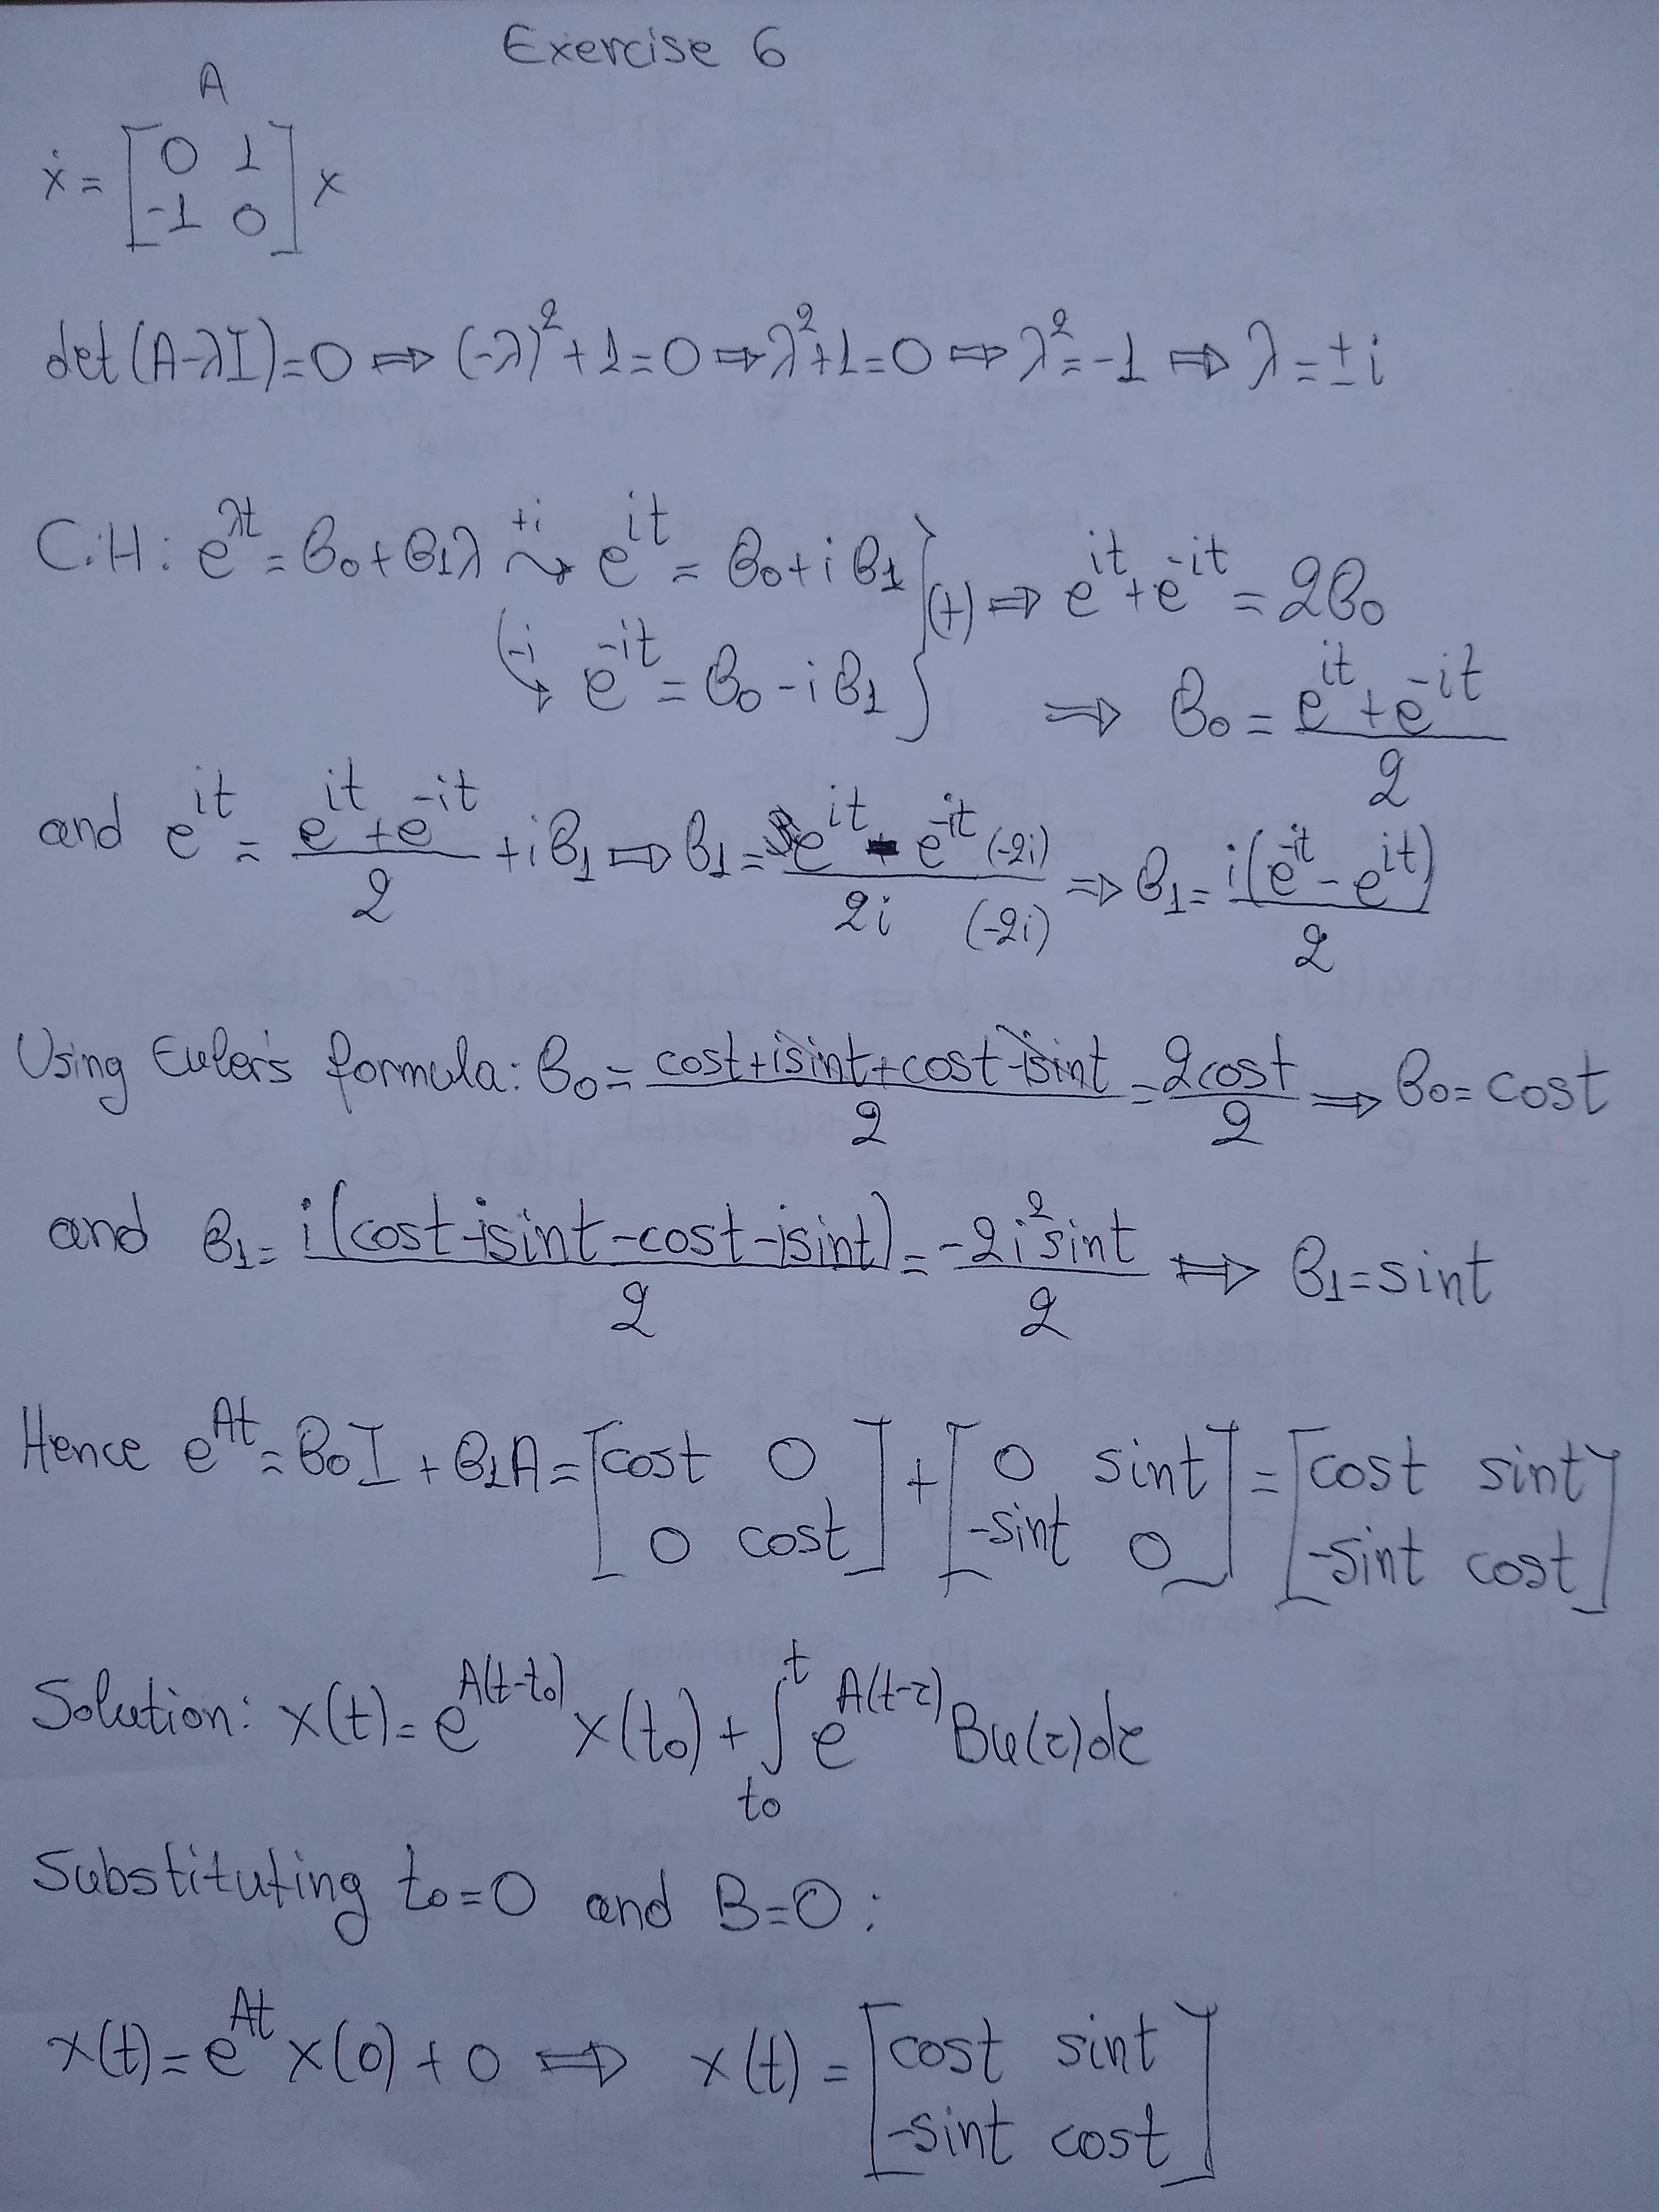 Exercise 6
A
ẋ = [0 1; -1 0] x
det(A-λI)=0 ⇒ (-λ)²+1=0 ⇒ λ²+1=0 ⇒ λ²=-1 ⇒ λ=±i
C.H: e^{λt} = β₀+β₁λ +i⤳ e^{it} = β₀+iβ₁ } (+) ⇒ e^{it}+e^{-it} = 2β₀
(-i ↘ e^{-it} = β₀-iβ₁ } ⇒ β₀ = (e^{it}+e^{-it})/2
and e^{it} = (e^{it}+e^{-it})/2 + iβ₁ ⇒ β₁ = (e^{it} - e^{-it} (-2i))/(2i (-2i)) ⇒ β₁ = i(e^{-it} - e^{it})/2
Using Euler's formula: β₀ = (cost+isint+cost-isint)/2 = 2cost/2 ⇒ β₀ = cost
and β₁ = i(cost-isint-cost-isint)/2 = -2i²sint/2 ⇒ β₁=sint
Hence e^{At} = β₀I + β₁A = [cost 0; 0 cost] + [0 sint; -sint 0] = [cost sint; -sint cost]
Solution: x(t) = e^{A(t-t₀)} x(t₀) + ∫_{t₀}^{t} e^{A(t-τ)} Bu(τ)dτ
Substituting t₀=0 and B=0:
x(t) = e^{At} x(0) + 0 ⇒ x(t) = [cost sint; -sint cost]